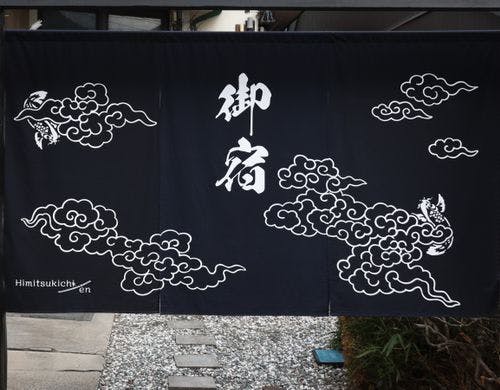 御宿
Himitsukichi
en